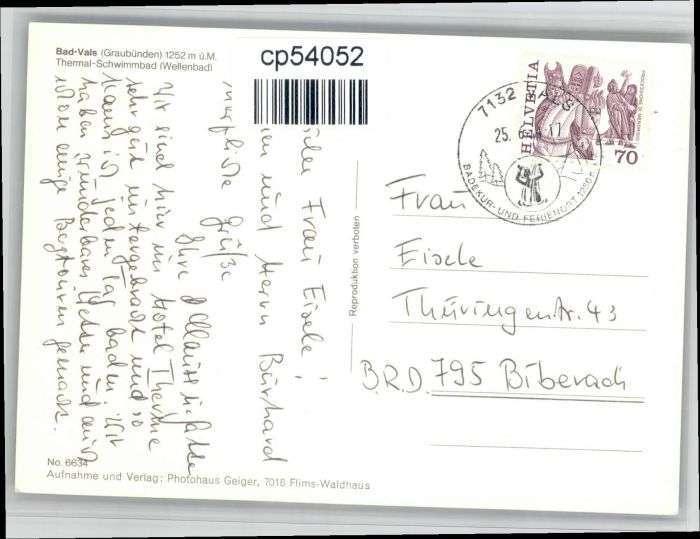 Bad-Vals (Graubünden) 1252 m ü.M.
Thermal-Schwimmbad (Wellenbad)
cp54052
HELVETIA
70
7132 VALS
25.
17
BADEKUR- UND FERIENORT 1250 M
Frau Eisele!
und Herrn Burkhard
Wir sind hier im Hotel Therme
sehr gut untergebracht und so
kann ich jeden Tag baden. Wir
haben wunderbares Wetter und auch
schon einige Bergtouren gemacht.
Grüße
Ihre
Frau
Eisele
Thüringenstr. 43
B.R.D. 795 Biberach
Reproduktion verboten
No. 6634
Aufnahme und Verlag: Photohaus Geiger, 7018 Flims-Waldhaus